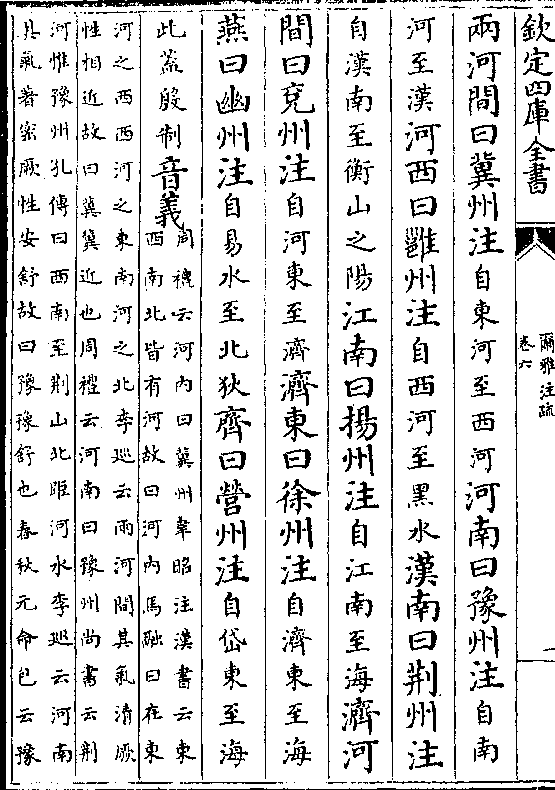 欽定四庫全書
爾雅注疏
卷六
一
兩河間曰冀州注自東河至西河河南曰豫州注自南
河至漢河西曰雝州注自西河至黑水漢南曰荆州注
自漢南至衡山之陽江南曰揚州注自江南至海濟河
間曰兗州注自河東至濟濟東曰徐州注自濟東至海
燕曰幽州注自易水至北狄齊曰營州注自岱東至海
此蓋殷制音義周禮云河内曰冀州韋昭注漢書云東
西南北皆有河故曰河内馬融曰在東
河之西西河之東南河之北李巡云兩河間其氣清厥
性相近故曰冀冀近也周禮云河南曰豫州尚書云荆
河惟豫州孔傳曰西南至荆山北距河水李巡云河南
其氣著宻厥性安舒故曰豫豫舒也春秋元命包云豫